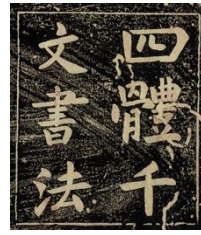 四體千
文書法